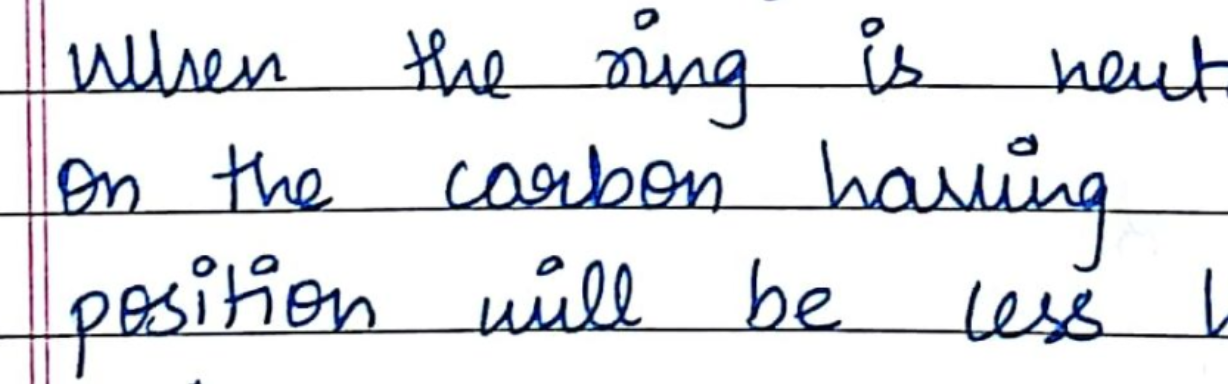 When the ring is neut
on the carbon having
position will be less